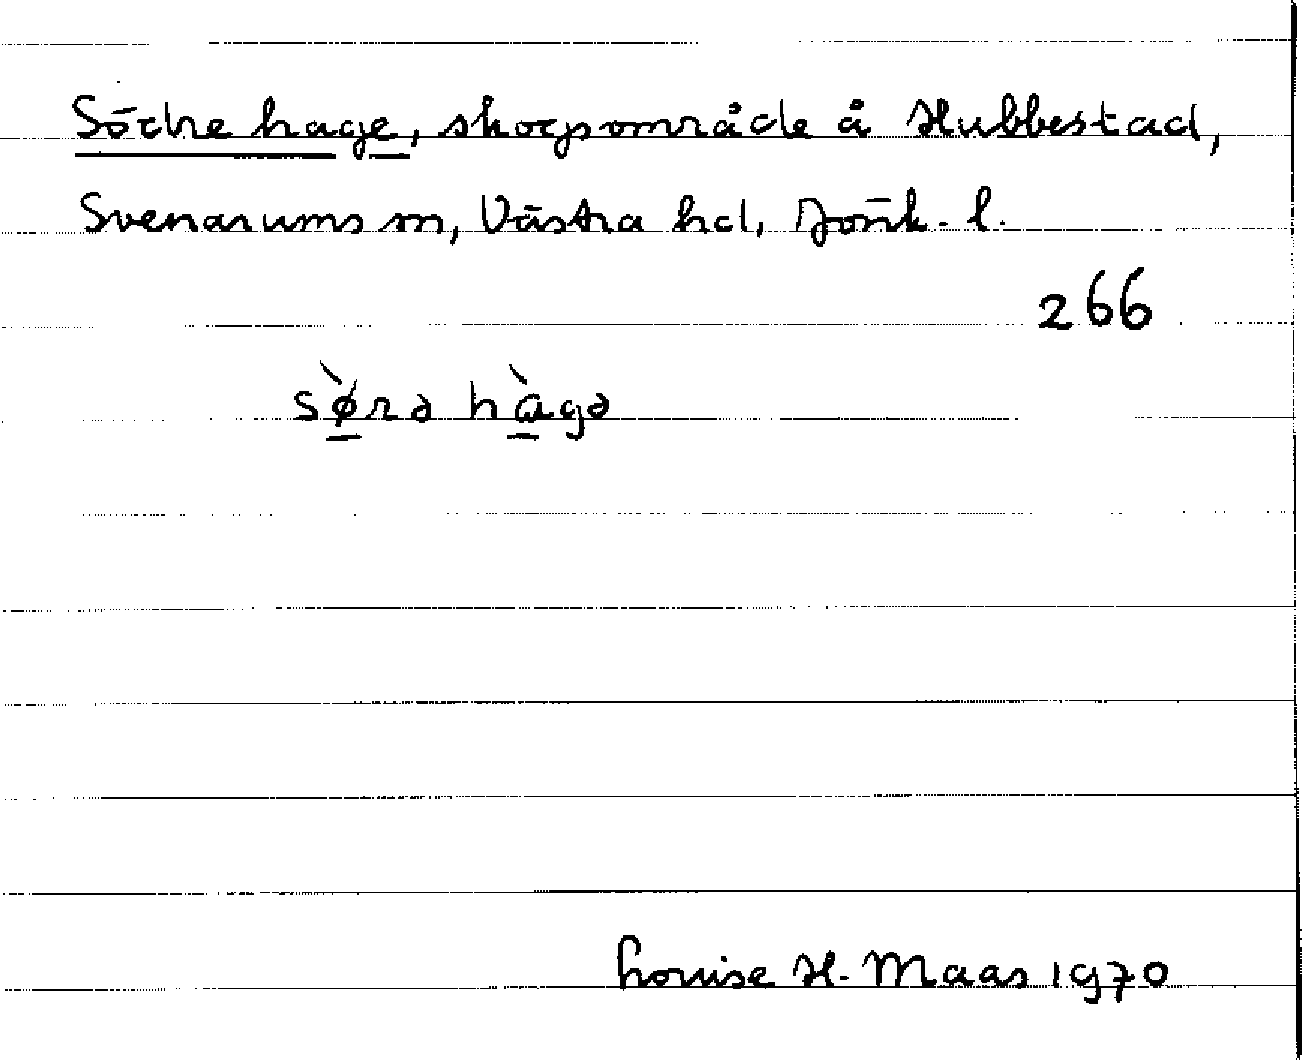 Södre hage, skogsområde å Hubbestad,
Svenarums sn, Västra hd, Jönk. l.
266
sø̀rə hàgə
Louise H. Maas 1970